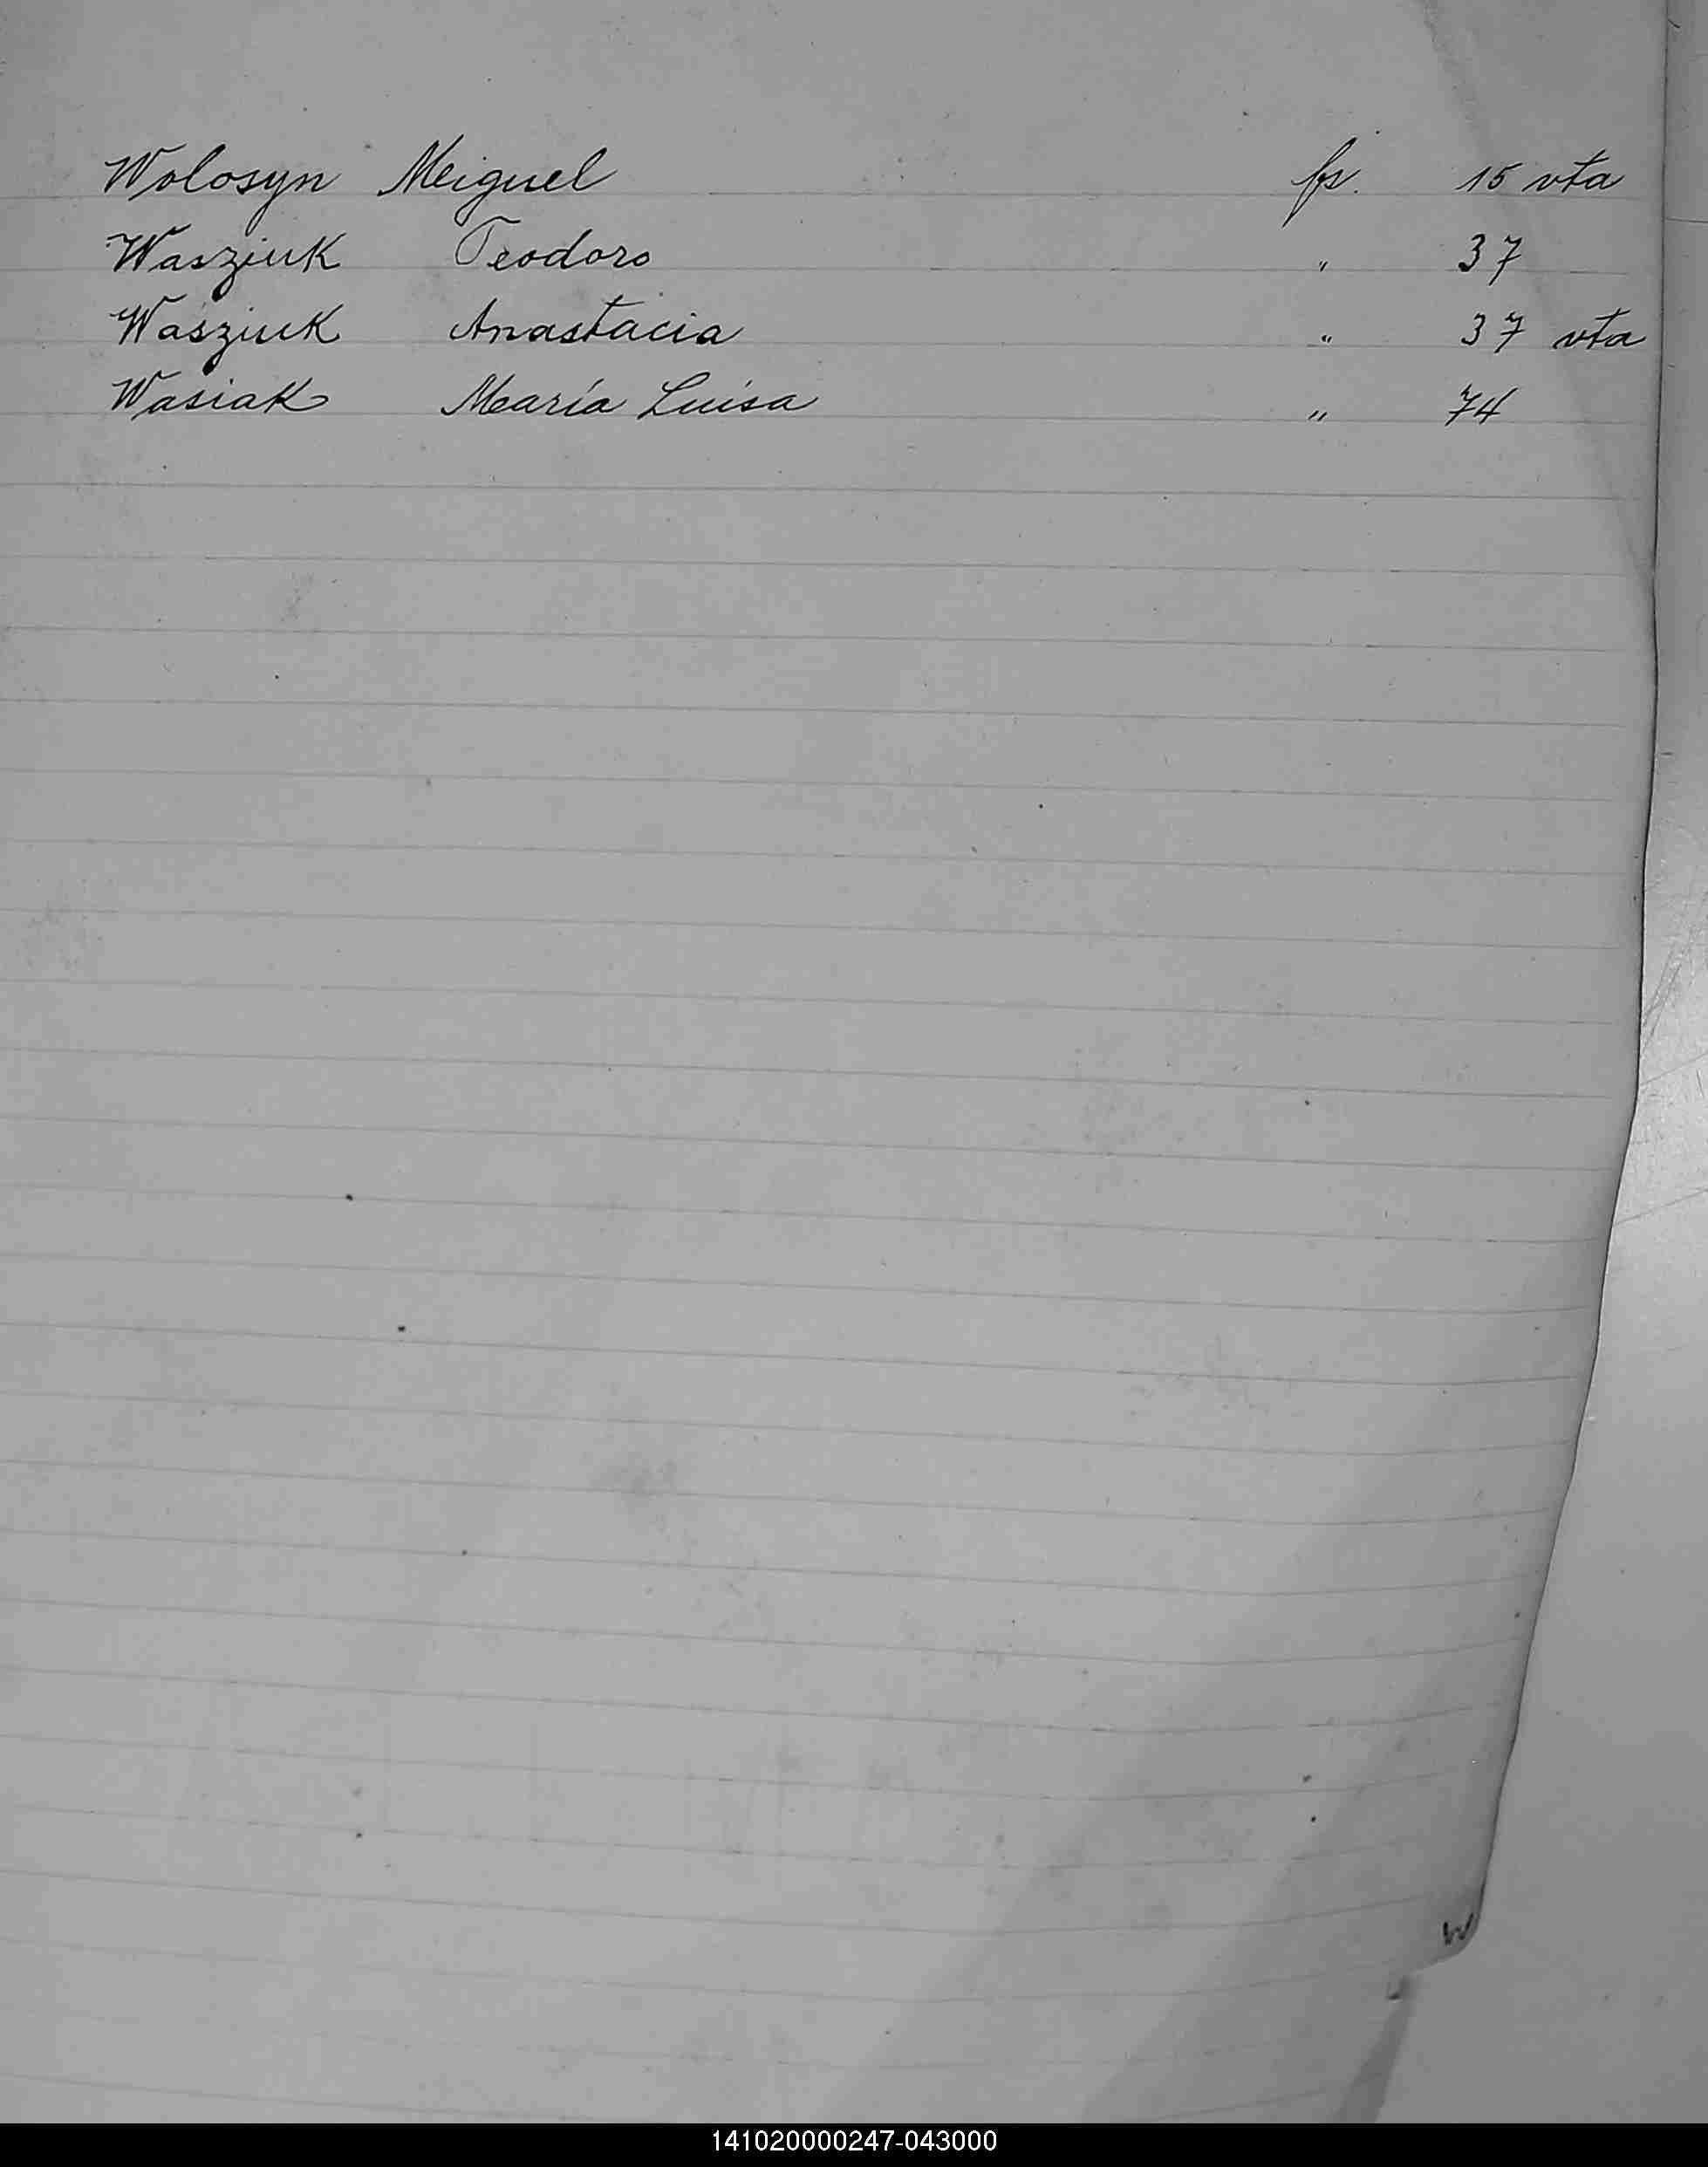 Wolosyn Meiguel fs. 15 vta
Wasziuk Teodoro " 37
Wasziuk Anastacia " 37 vta
Wasiak María Luisa " 74
W
141020000247-043000